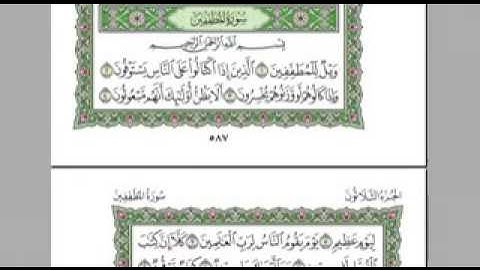 سُورَةُ المُطَفِّفِينَ
بِسْمِ اللَّهِ الرَّحْمَٰنِ الرَّحِيمِ
وَيْلٌ لِّلْمُطَفِّفِينَ ١ الَّذِينَ إِذَا اكْتَالُوا عَلَى النَّاسِ يَسْتَوْفُونَ ٢
وَإِذَا كَالُوهُمْ أَو وَّزَنُوهُمْ يُخْسِرُونَ ٣ أَلَا يَظُنُّ أُولَٰئِكَ أَنَّهُم مَّبْعُوثُونَ ٤
٥٨٧
الجُزءُ الثَّلَاثُونَ سُورَةُ المُطَفِّفِينَ
لِيَوْمٍ عَظِيمٍ ٥ يَوْمَ يَقُومُ النَّاسُ لِرَبِّ الْعَالَمِينَ ٦ كَلَّا إِنَّ كِتَابَ